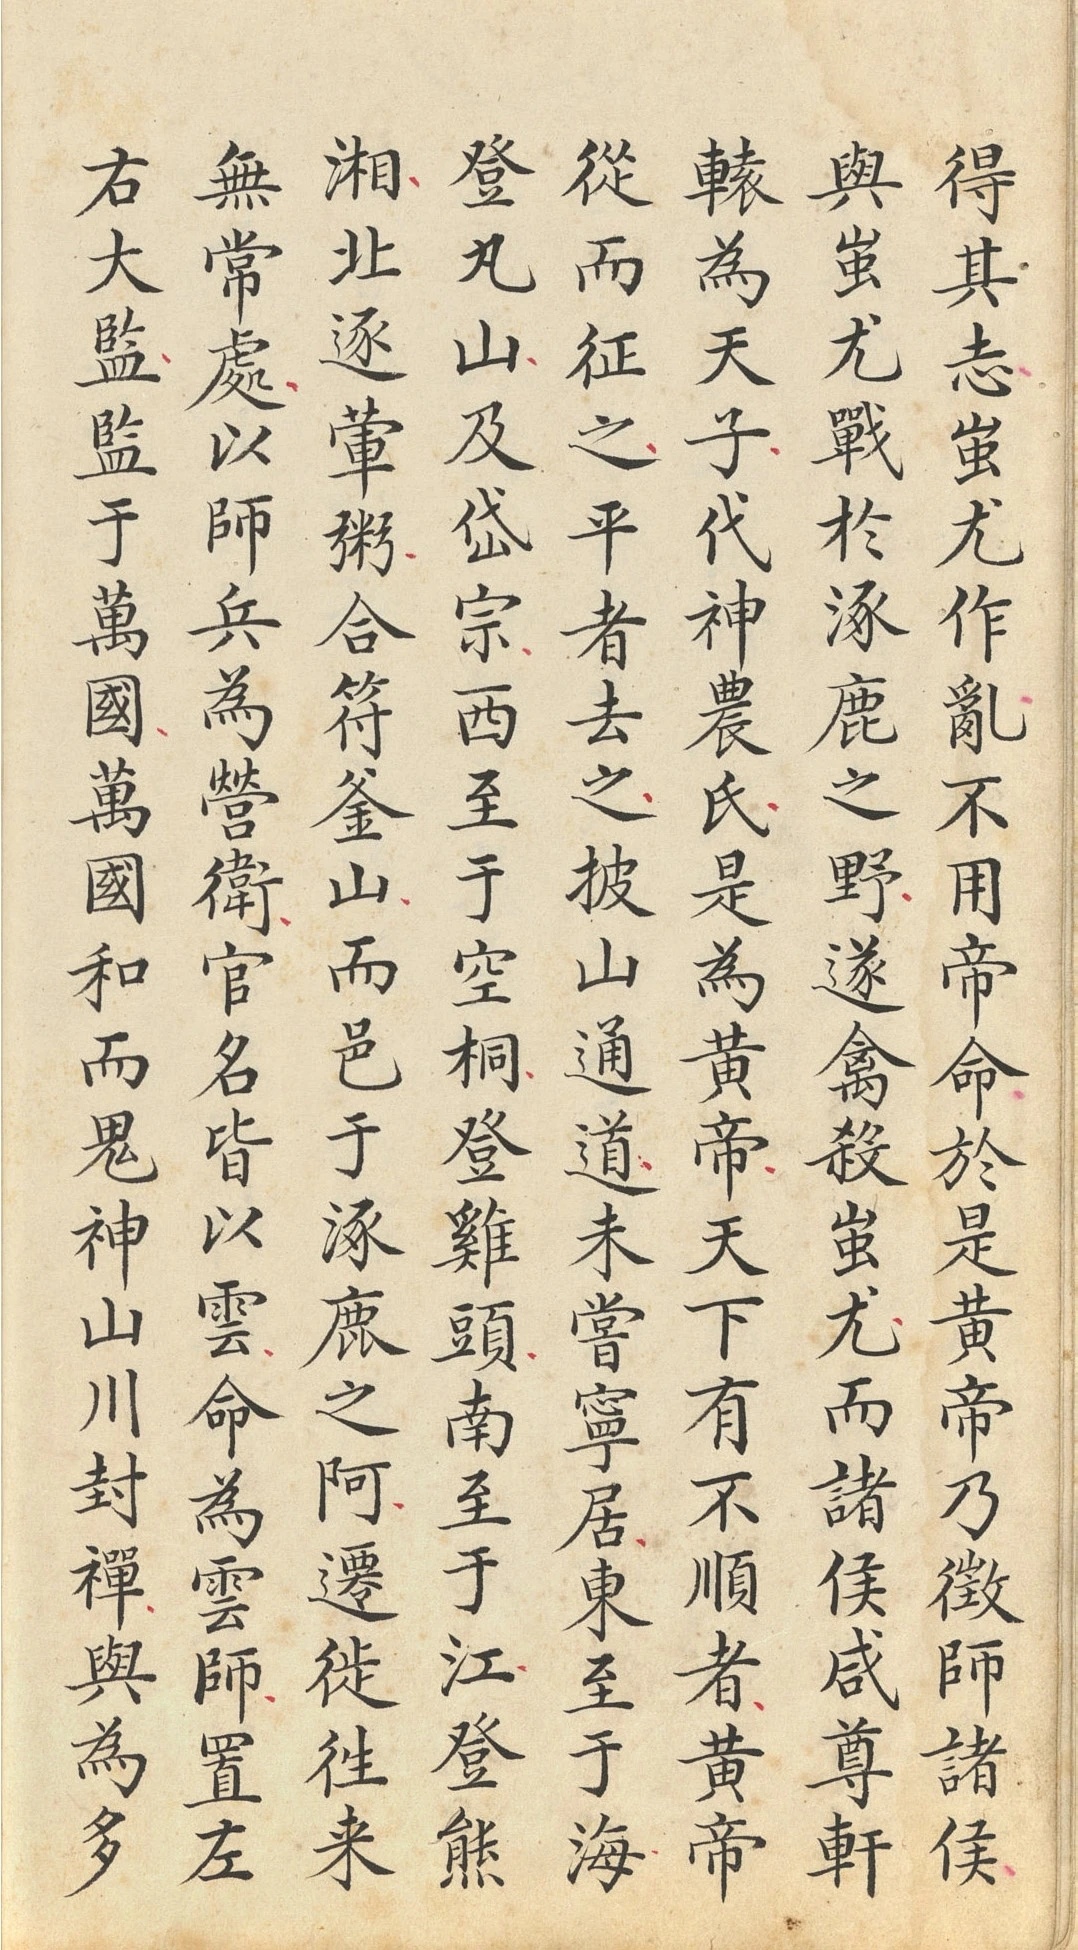 得其志蚩尤作亂不用帝命於是黄帝乃徵師諸侯
與蚩尤戰於涿鹿之野遂禽殺蚩尤而諸侯咸尊軒
轅為天子代神農氏是為黄帝天下有不順者黄帝
從而征之平者去之披山通道未嘗寧居東至于海
登丸山及岱宗西至于空桐登雞頭南至于江登熊
湘北逐葷粥合符釜山而邑于涿鹿之阿遷徙往来
無常處以師兵為營衛官名皆以雲命為雲師置左
右大監監于萬國萬國和而鬼神山川封禪與為多